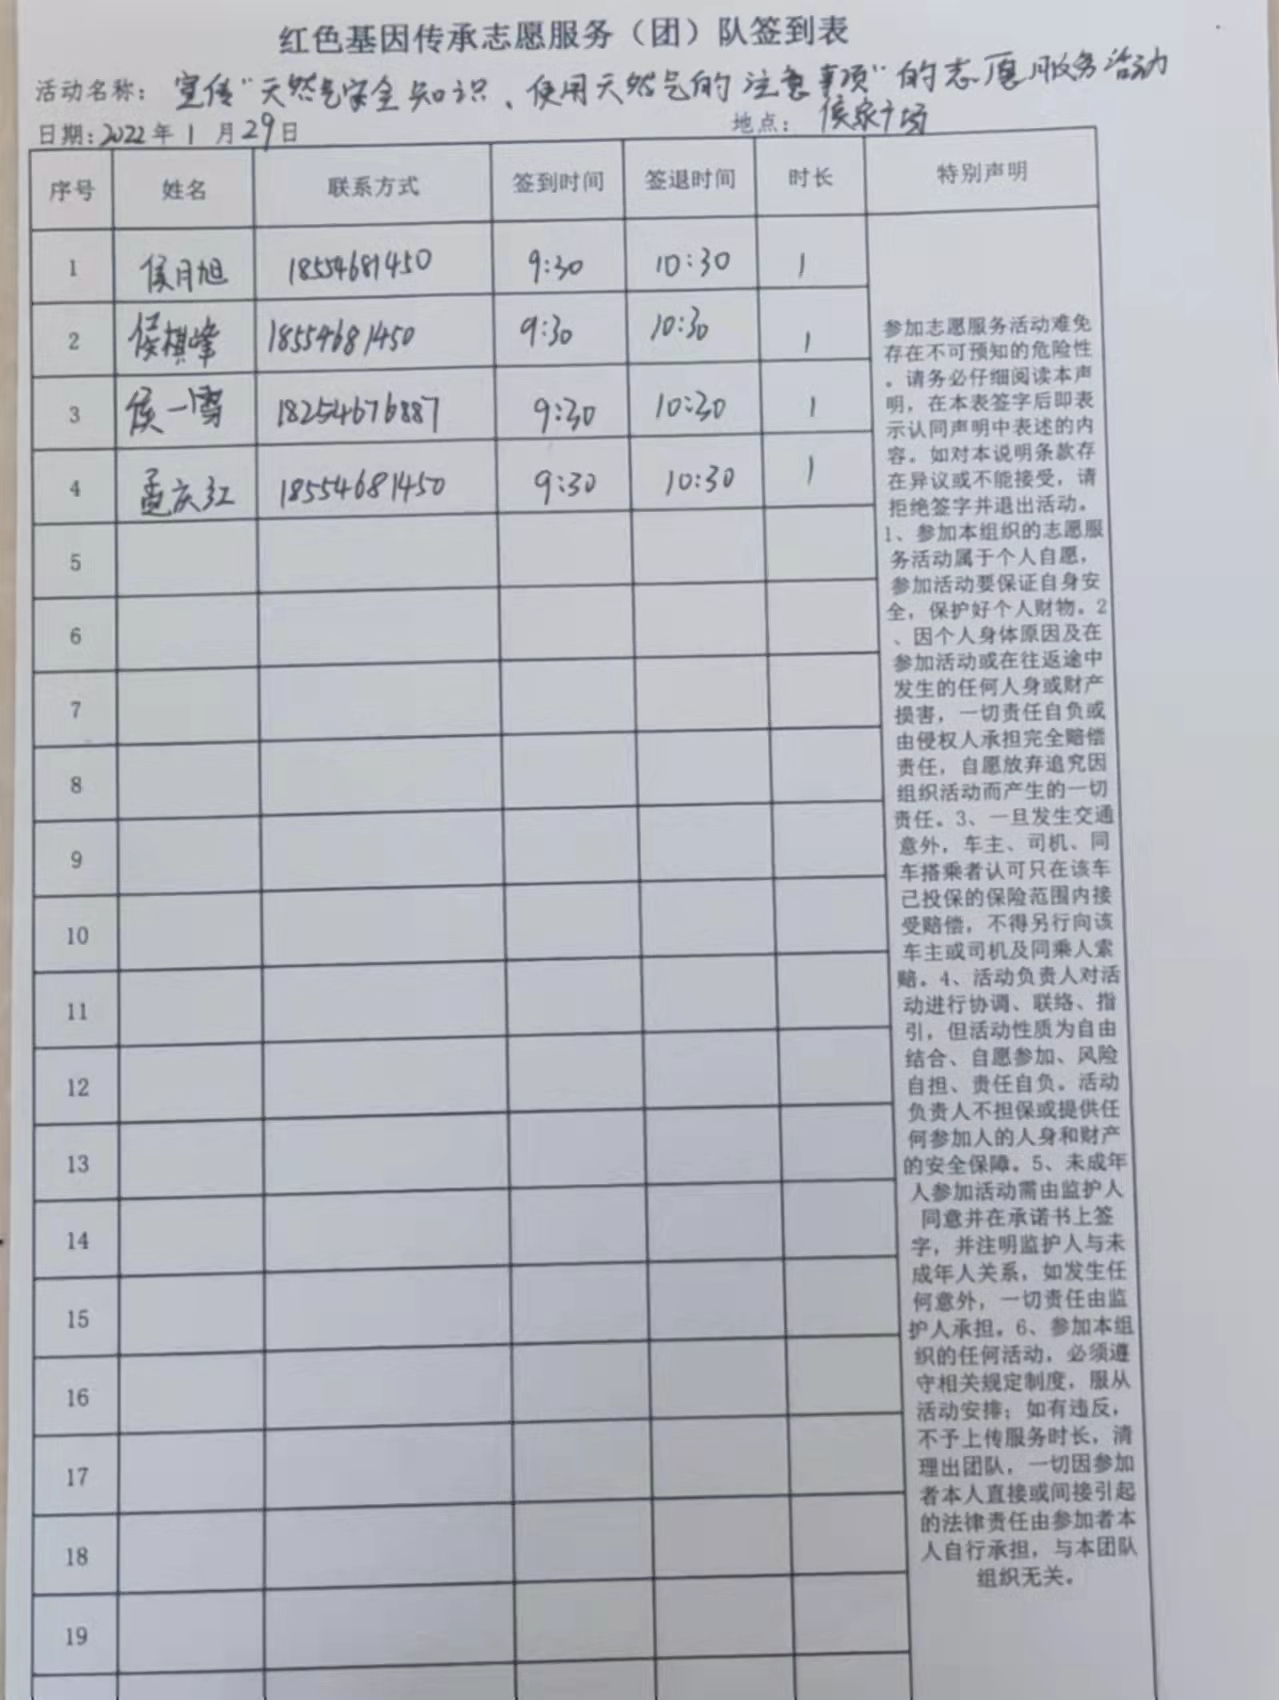 红色基因传承志愿服务（团）队签到表
活动名称：宣传“天然气安全知识、使用天然气的注意事项”的志愿服务活动
日期：2022年1月29日 地点：侯家广场
序号 姓名 联系方式 签到时间 签退时间 时长 特别声明
1 侯月旭 18554681450 9:30 10:30 1
2 侯棋峰 18554681450 9:30 10:30 1
3 侯一雪 18254676887 9:30 10:30 1
4 孟庆红 18554681450 9:30 10:30 1
5
6
7
8
9
10
11
12
13
14
15
16
17
18
19
参加志愿服务活动难免
存在不可预知的危险性
。请务必仔细阅读本声
明，在本表签字后即表
示认同声明中表述的内
容。如对本说明条款存
在异议或不能接受，请
拒绝签字并退出活动。
1、参加本组织的志愿服
务活动属于个人自愿，
参加活动要保证自身安
全，保护好个人财物。2
、因个人身体原因及在
参加活动或在往返途中
发生的任何人身或财产
损害，一切责任自负或
由侵权人承担完全赔偿
责任，自愿放弃追究因
组织活动而产生的一切
责任。3、一旦发生交通
意外，车主、司机、同
车搭乘者认可只在该车
已投保的保险范围内接
受赔偿，不得另行向该
车主或司机及同乘人索
赔。4、活动负责人对活
动进行协调、联络、指
引，但活动性质为自由
结合、自愿参加、风险
自担、责任自负。活动
负责人不担保或提供任
何参加人的人身和财产
的安全保障。5、未成年
人参加活动需由监护人
同意并在承诺书上签
字，并注明监护人与未
成年人关系，如发生任
何意外，一切责任由监
护人承担。6、参加本组
织的任何活动，必须遵
守相关规定制度，服从
活动安排；如有违反，
不予上传服务时长，清
理出团队，一切因参加
者本人直接或间接引起
的法律责任由参加者本
人自行承担，与本团队
组织无关。